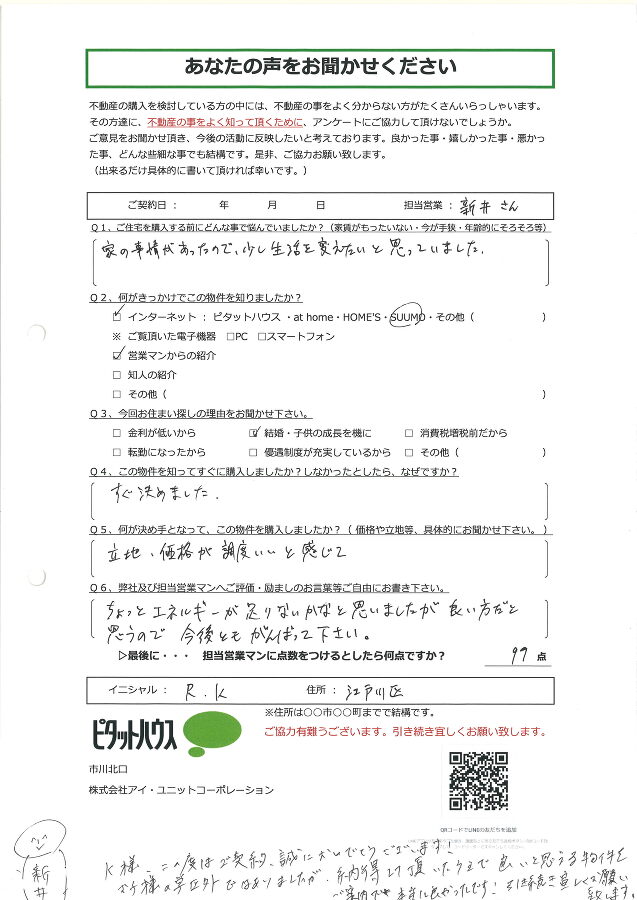 あなたの声をお聞かせください
不動産の購入を検討している方の中には、不動産の事をよく分からない方がたくさんいらっしゃいます。
その方達に、不動産の事をよく知って頂くために、アンケートにご協力して頂けないでしょうか。
ご意見をお聞かせ頂き、今後の活動に反映したいと考えております。良かった事・嬉しかった事・悪かっ
た事、どんな些細な事でも結構です。是非、ご協力お願い致します。
（出来るだけ具体的に書いて頂ければ幸いです。）
ご契約日： 年 月 日 担当営業： 新井さん
Q１、ご住宅を購入する前にどんな事で悩んでいましたか？（家賃がもったいない・今が手狭・年齢的にそろそろ等）
家の事情があったので、少し生活を変えたいと思っていました。
Q２、何がきっかけでこの物件を知りましたか？
☑ インターネット：ピタットハウス・at home・HOME'S・SUUMO・その他（ ）
※ ご覧頂いた電子機器 □PC □スマートフォン
☑ 営業マンからの紹介
□ 知人の紹介
□ その他（ ）
Q３、今回お住まい探しの理由をお聞かせ下さい。
□ 金利が低いから ☑ 結婚・子供の成長を機に □ 消費税増税前だから
□ 転勤になったから □ 優遇制度が充実しているから □ その他（ ）
Q４、この物件を知ってすぐに購入しましたか？しなかったとしたら、なぜですか？
すぐ決めました。
Q５、何が決め手となって、この物件を購入しましたか？（ 価格や立地等、具体的にお聞かせ下さい。 ）
立地、価格が調度いいと感じて
Q６、弊社及び担当営業マンへご評価・励ましのお言葉等ご自由にお書き下さい。
ちょっとエネルギーが足りないかなと思いましたが良い方だと
思うので 今後ともがんばって下さい。
▷最後に・・・ 担当営業マンに点数をつけるとしたら何点ですか？ 99 点
イニシャル： R.K 住所： 江戸川区
※住所は○○市○○町までで結構です。
ピタットハウス
ご協力有難うございます。引き続き宜しくお願い致します。
市川北口
株式会社アイ・ユニットコーポレーション
QRコードでLINEの友だちを追加
新井
K様、この度はご契約、誠におめでとうございます！
お子様の学区外ではありましたが、納得して頂いたうえで良いと思う物件を
ご案内でき本当に良かったです！引き続き宜しくお願い
致します。